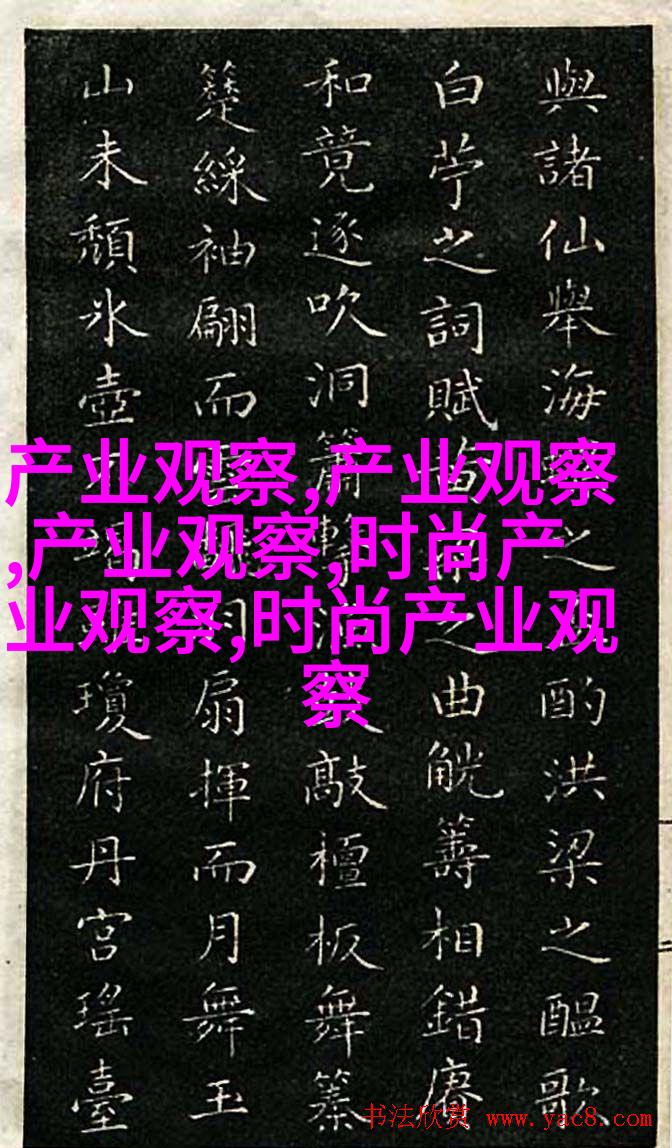 與諸仙舉海之酌洪梁之醞歌
白苧之詞賦之曲觥籌相錯賡
和竟逐吹洞簫敲檀板舞
綵袖翩而扇揮而月舞玉
山未頹冰壺瓊府丹宮瑤臺
产业观察,产业观察
,产业观察,时尚产
业观察,时尚产业观
察
书法欣赏 www.yac8.com